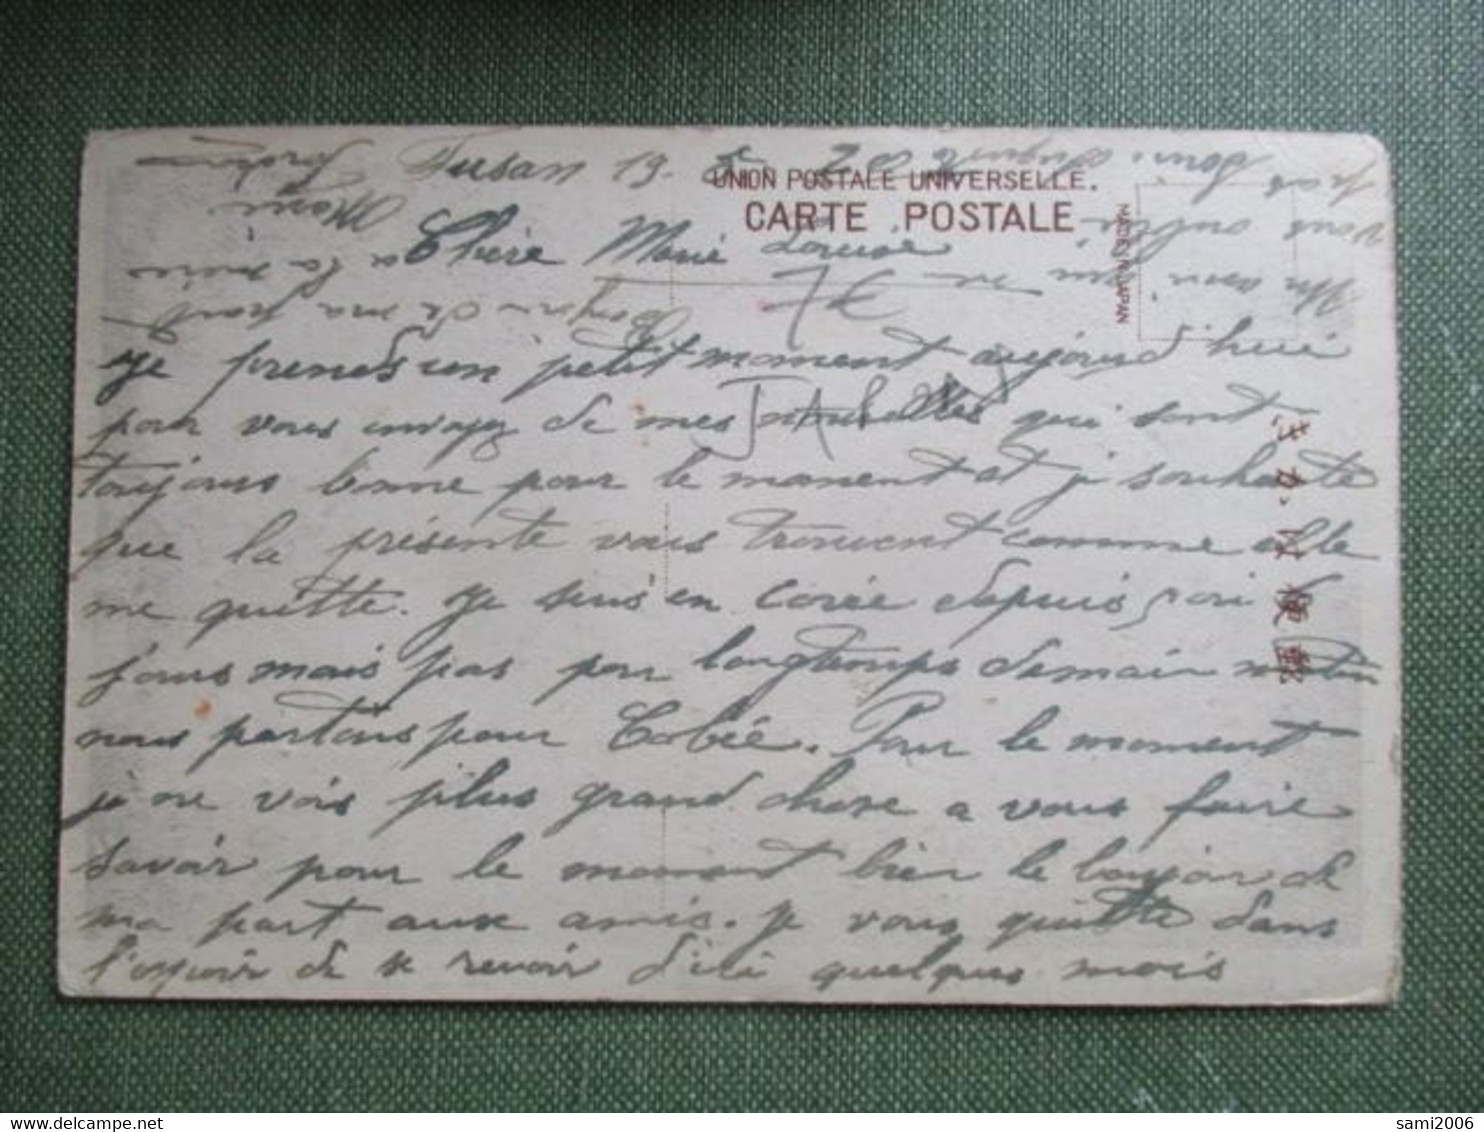 Fusan 19
UNION POSTALE UNIVERSELLE.
CARTE POSTALE
MADE IN JAPAN
Chère Marie Louise
7€
JAPON
Je prends un petit moment aujourd'hui
pour vous envoyez de mes nouvelles qui sont
toujours bonne pour le moment et je souhaite
que la présente vous trouvent comme elle
me quitte. Je suis en Corée depuis
jours mais pas pour longtemps demain matin
nous partons pour Cobée. Pour le moment
je ne vois plus grand chose a vous faire
savoir pour le moment bien le bonjour de
ma part aux amis. Je vous quitte dans
l'espoir de se revoir d'ici quelques mois
bonjour de ma part
a la
Marie
Un ami qui ne
vous oublie
pas
sami2006